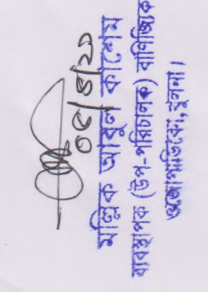 ০৫/৪/২১
মল্লিক আবুল কাশেম
ব্যবস্থাপক (উপ-পরিচালক) বাণিজ্যিক
ওজোপাডিকো, খুলনা।